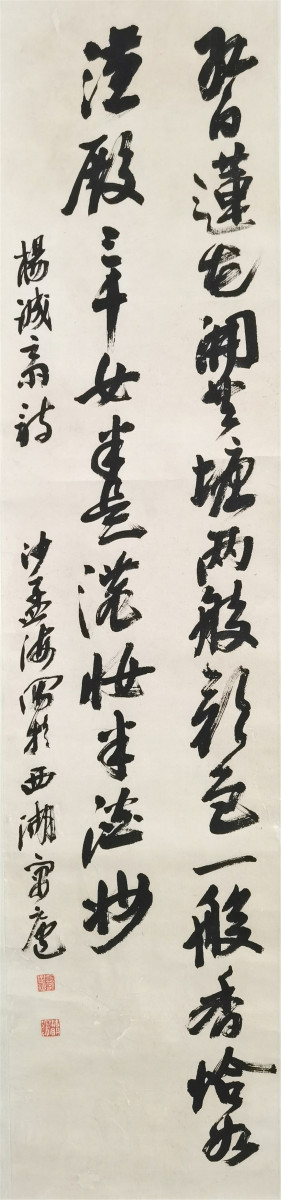 紅白蓮花開共塘兩般顏色一般香恰如
漢殿三千女半是濃妝半淡妝
楊誠齋詩 沙孟海寫於西湖寓廬